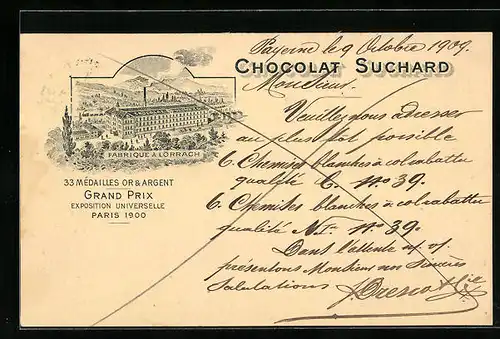 Payerne le 9 Octobre 1909.
CHOCOLAT SUCHARD
Monsieur.
Veuillez nous adresser
au plus tôt possible
6. Chemises blanches à col rabattu
qualité C. No 39.
6. Chemises blanches à col rabattu
qualité No 39.
Dans l'attente
présentons Monsieur nos Sincères
Salutations
FABRIQUE À LÖRRACH
33 MÉDAILLES OR & ARGENT
GRAND PRIX
EXPOSITION UNIVERSELLE
PARIS 1900